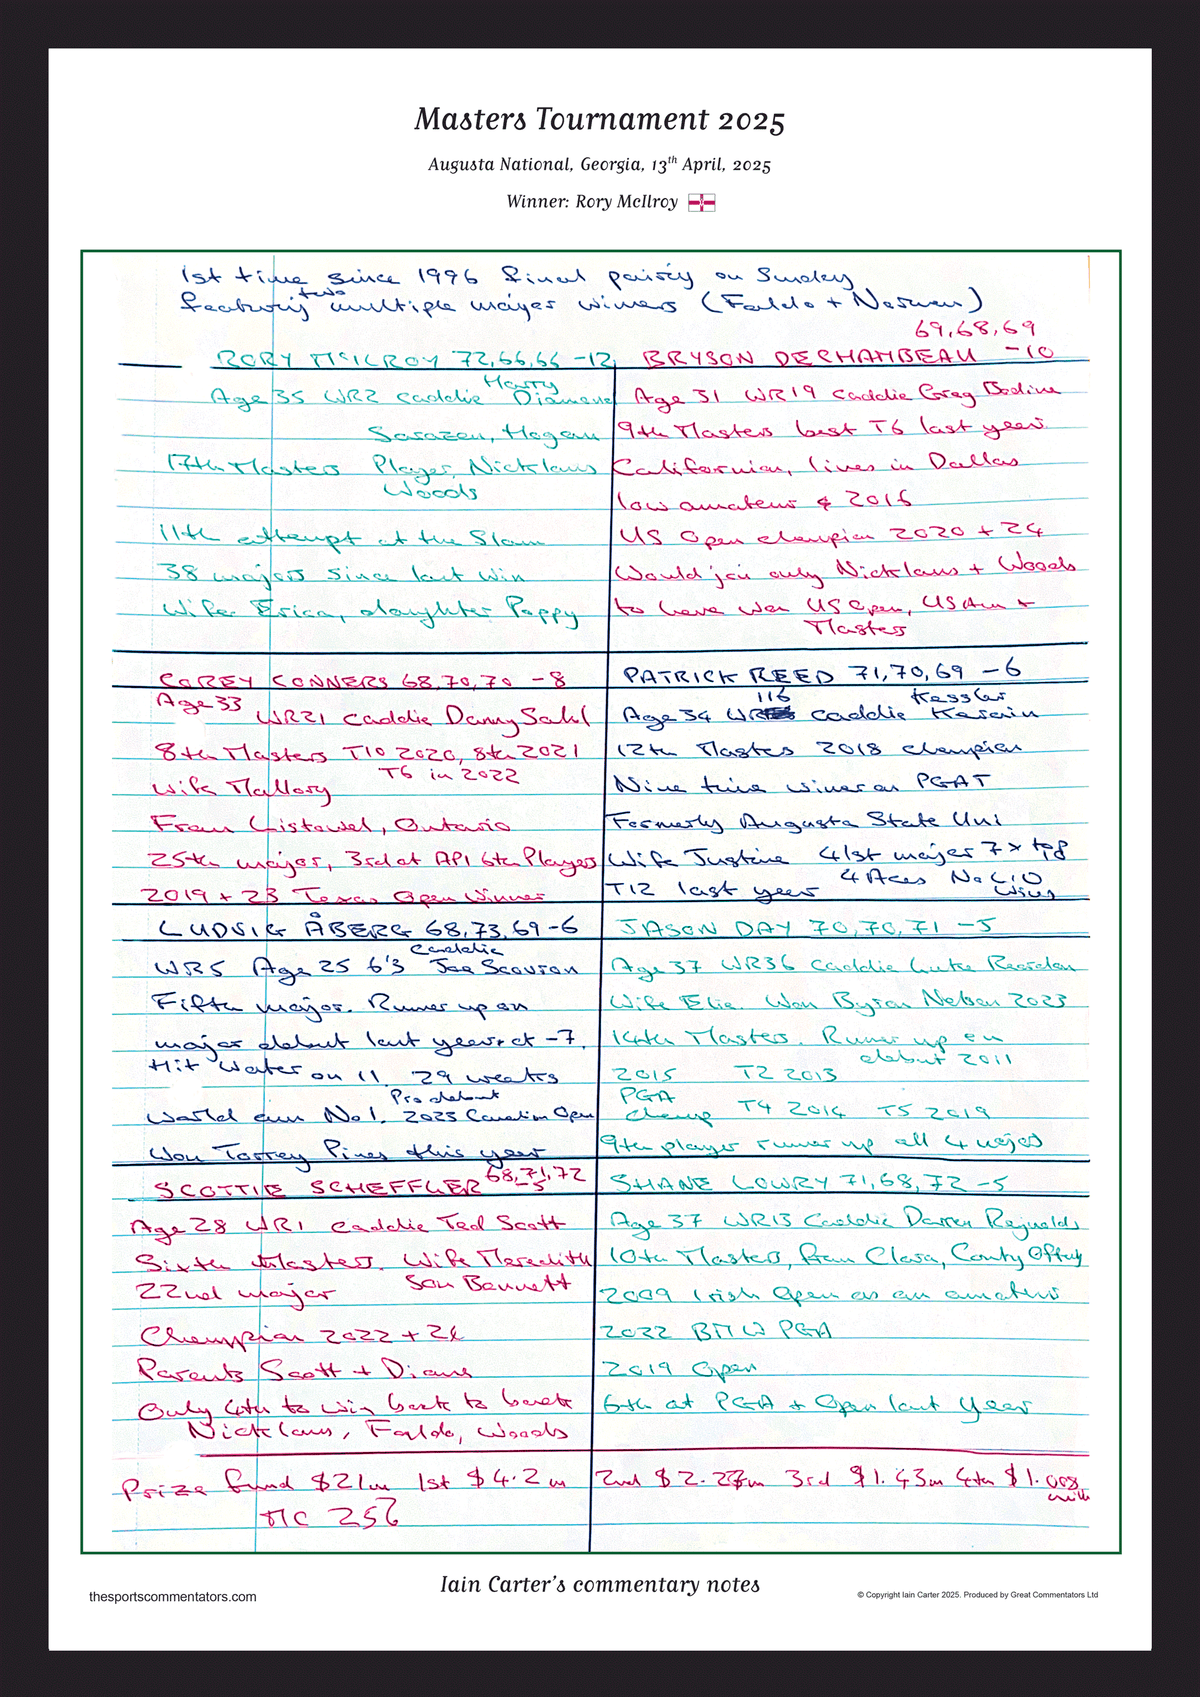 Masters Tournament 2025
Augusta National, Georgia, 13th April, 2025
Winner: Rory McIlroy
1st time since 1996 final pairing on Sunday
featuring two multiple major winners (Faldo + Norman)
69,68,69
RORY McILROY 72,66,66 -12
BRYSON DECHAMBEAU -10
Age 35 WR2 caddie Harry Diamond
Sarazen, Hogan
17th Masters Player, Nicklaus
Woods
11th attempt at the Slam
38 majors since last win
Wife Erica, daughter Poppy
Age 31 WR19 caddie Greg Bodine
9th Masters best T6 last year
Californian, lives in Dallas
low amateur 2016
US Open champion 2020 + 24
Would join only Nicklaus + Woods
to have won US Open, US Am +
Masters
COREY CONNERS 68,70,70 -8
Age 33 WR21 caddie Danny Sahl
8th Masters T10 2020, 8th 2021
T6 in 2022
Wife Mallory
From Listowel, Ontario
25th major, 3rd at API 6th Players
2019 + 23 Texas Open Winner
PATRICK REED 71,70,69 -6
116 Kessler
Age 34 WR caddie Karain
12th Masters 2018 champion
Nine time winner on PGAT
Formerly Augusta State Uni
Wife Justine 41st major 7x top8
T12 last year 4 Aces No LIV
wins
LUDVIG ÅBERG 68,73,69 -6
caddie
WR5 Age 25 6'3 Joe Scovron
Fifth major. Runner up on
major debut last year at -7.
Hit water on 11. 29 weeks
Pro debut
World am No1. 2023 Canadian Open
Won Torrey Pines this year
JASON DAY 70,70,71 -5
Age 37 WR36 caddie Luke Reardon
Wife Ellie. Won Byron Nelson 2023
14th Masters. Runner up on
debut 2011
2015 T2 2013
PGA
champ T4 2014 T5 2019
9th player runner up all 4 majors
SCOTTIE SCHEFFLER 68,71,72
-5
Age 28 WR1 caddie Ted Scott
Sixth Masters. Wife Meredith
22nd major Son Bennett
Champion 2022 + 24
Parents Scott + Diane
Only 4th to win back to back
Nicklaus, Faldo, Woods
SHANE LOWRY 71,68,72 -5
Age 37 WR13 Caddie Darren Reynolds
10th Masters, from Clara, County Offaly
2009 Irish Open as an amateur
2022 BMW PGA
2019 Open
6th at PGA + Open last year
Prize fund $21m 1st $4.2m 2nd $2.27m 3rd $1.43m 4th $1.008
mill
MC 256
Iain Carter's commentary notes
thesportscommentators.com
© Copyright Iain Carter 2025. Produced by Great Commentators Ltd